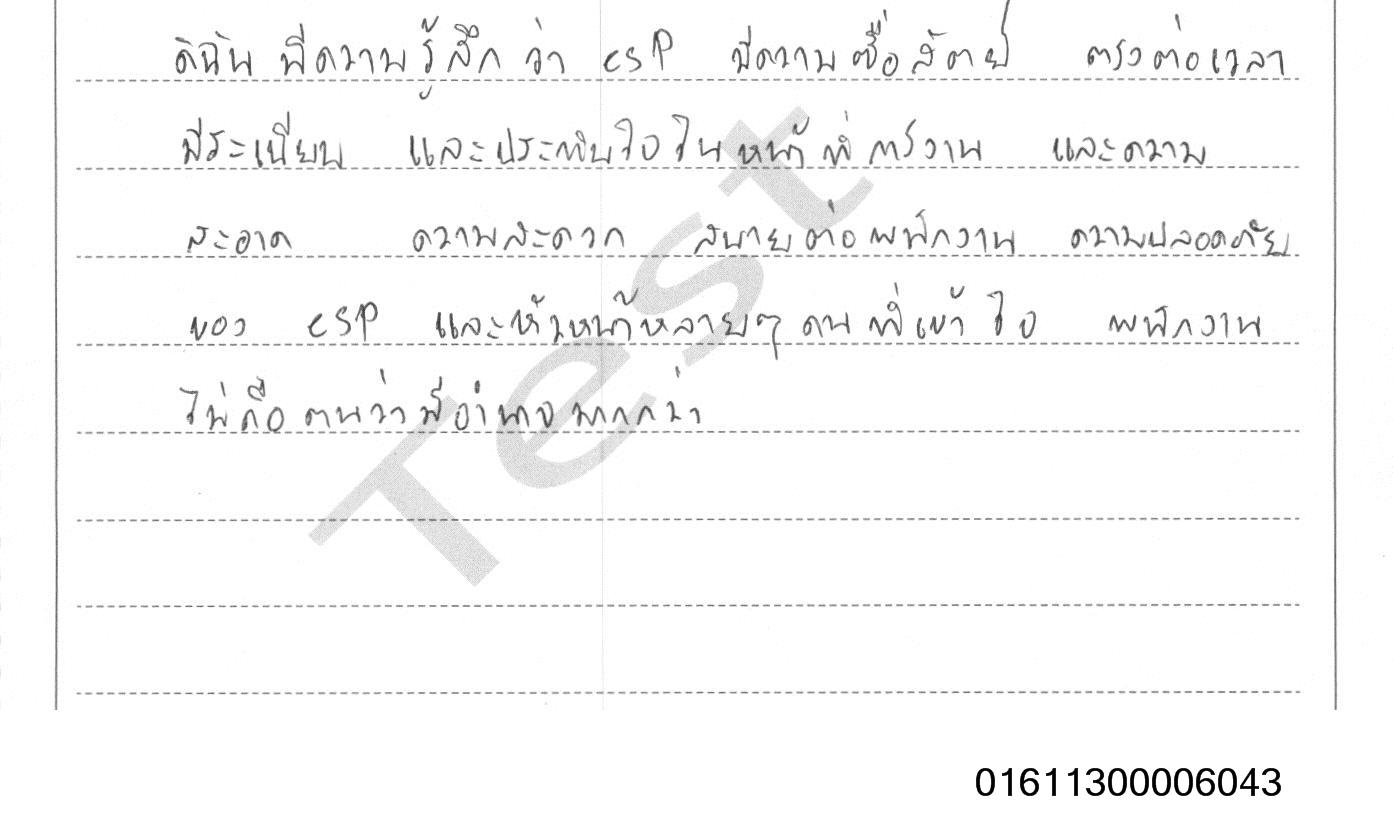 ดิฉัน มีความรู้สึกว่า CSP มีความซื่อสัตย์ ตรงต่อเวลา
มีระเบียบ และประทับใจในหน้าที่การงาน และความ
สะอาด ความสะดวก สบายต่อพนักงาน ความปลอดภัย
ของ CSP และหัวหน้าหลายๆ คนที่เข้าใจ พนักงาน
ไม่ถือตนว่ามีอำนาจมากกว่า
Test
01611300006043